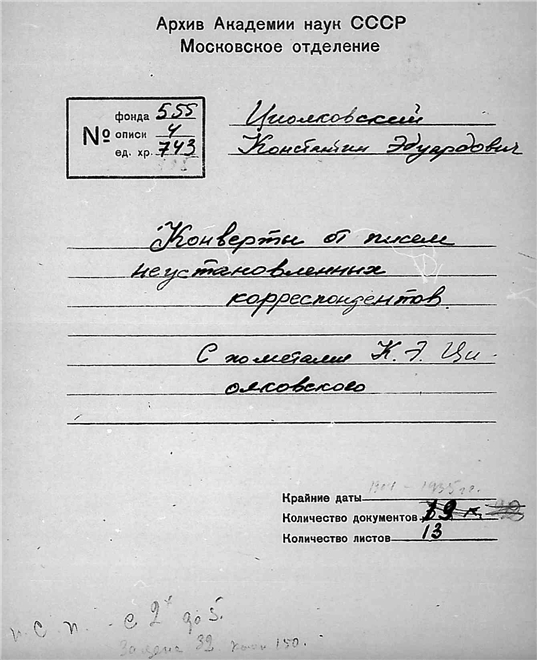 Архив Академии наук СССР
Московское отделение
№
фонда 555
описи 4
ед. хр. 743
Циолковский
Константин Эдуардович
Конверты от писем
неустановленных
корреспондентов.
С пометами К. Э. Ци-
олковского
Крайние даты - 1935 гг.
Количество документов
Количество листов 13
с 2 до 5.
32 150.